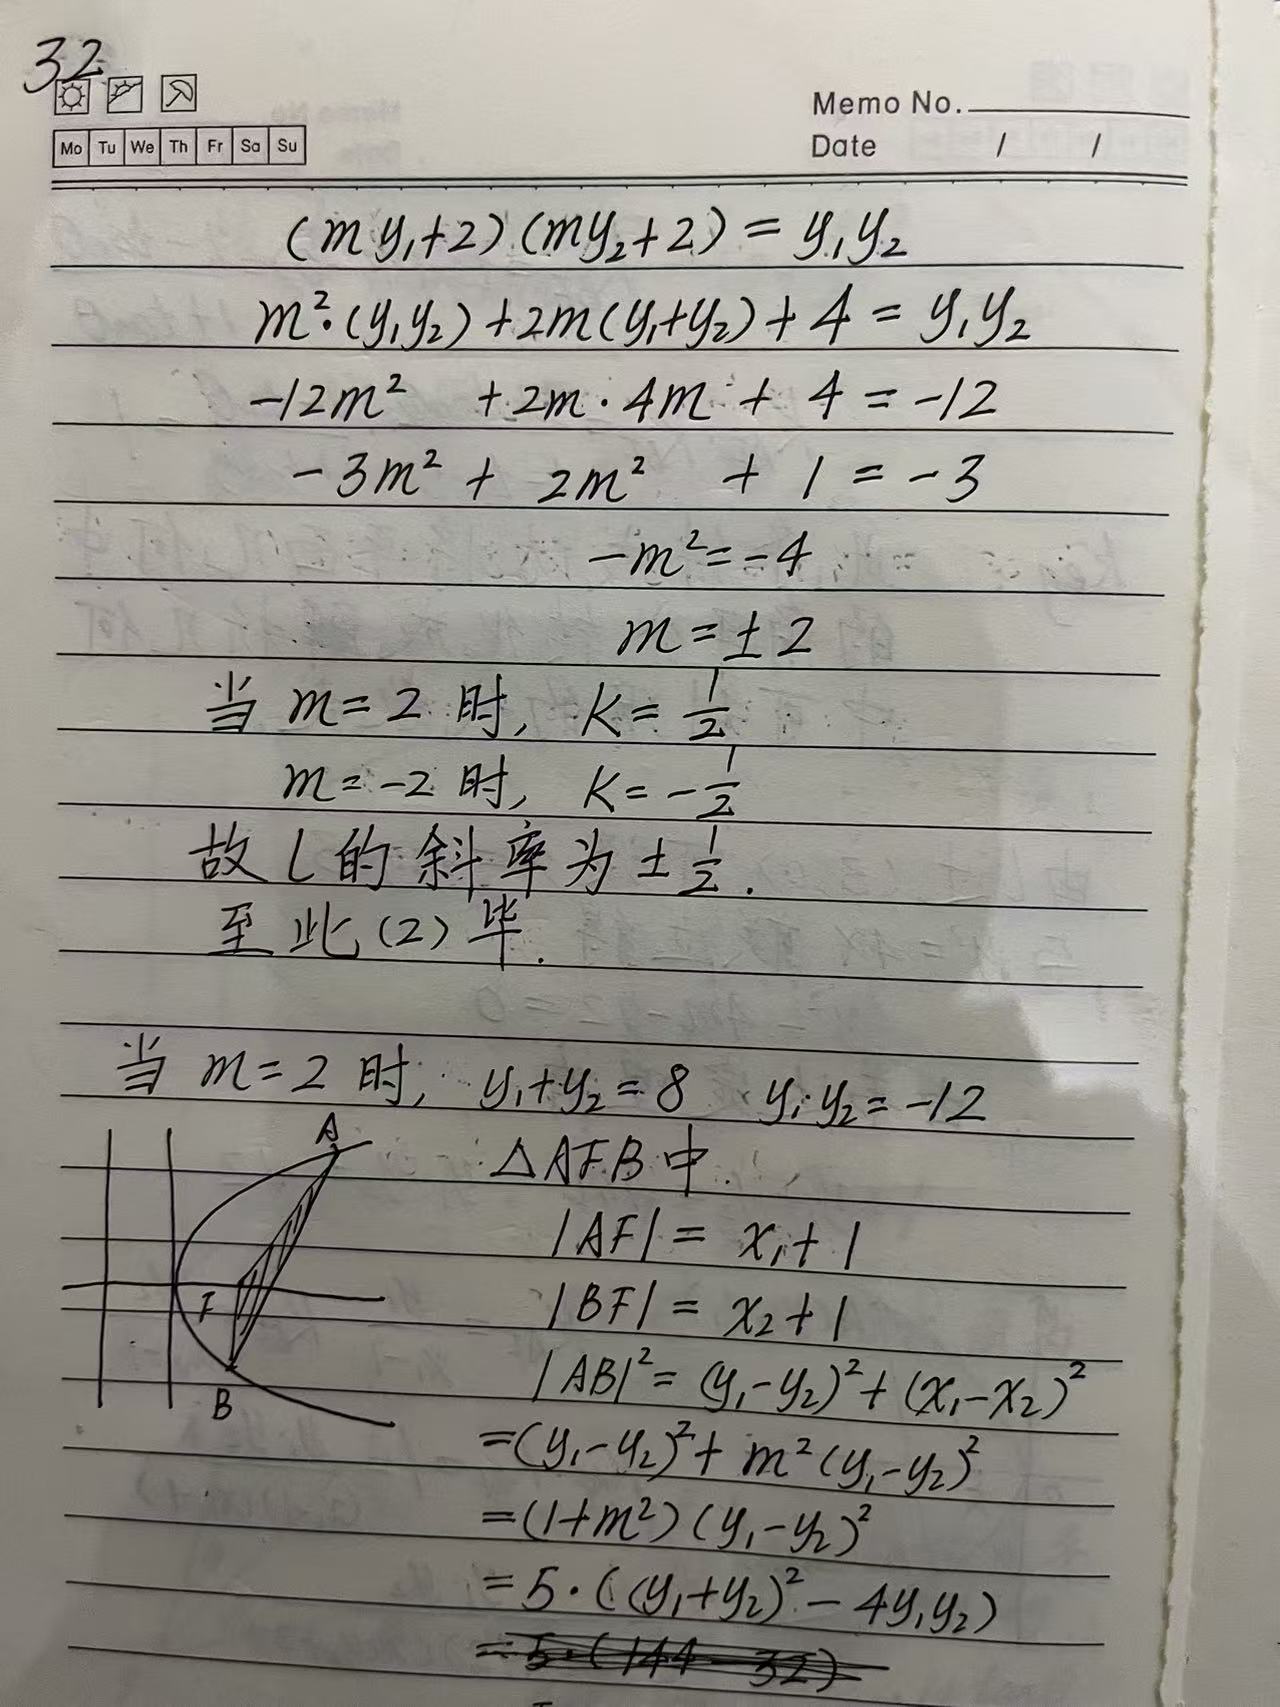 32
Memo No.
Mo Tu We Th Fr Sa Su
Date / /
(my₁+2)(my₂+2)=y₁y₂
m²·(y₁y₂)+2m(y₁+y₂)+4=y₁y₂
-12m² +2m·4m+4=-12
-3m²+2m² +1=-3
-m²=-4
m=±2
当m=2时, K=1/2
m=-2时, K=-1/2
故l的斜率为±1/2.
至此(2)毕.
当m=2时, y₁+y₂=8 y₁y₂=-12
A
△AFB中.
|AF|=x₁+1
F
|BF|=x₂+1
B
|AB|²=(y₁-y₂)²+(x₁-x₂)²
=(y₁-y₂)²+m²(y₁-y₂)²
=(1+m²)(y₁-y₂)²
=5·((y₁+y₂)²-4y₁y₂)
=5·(144-32)